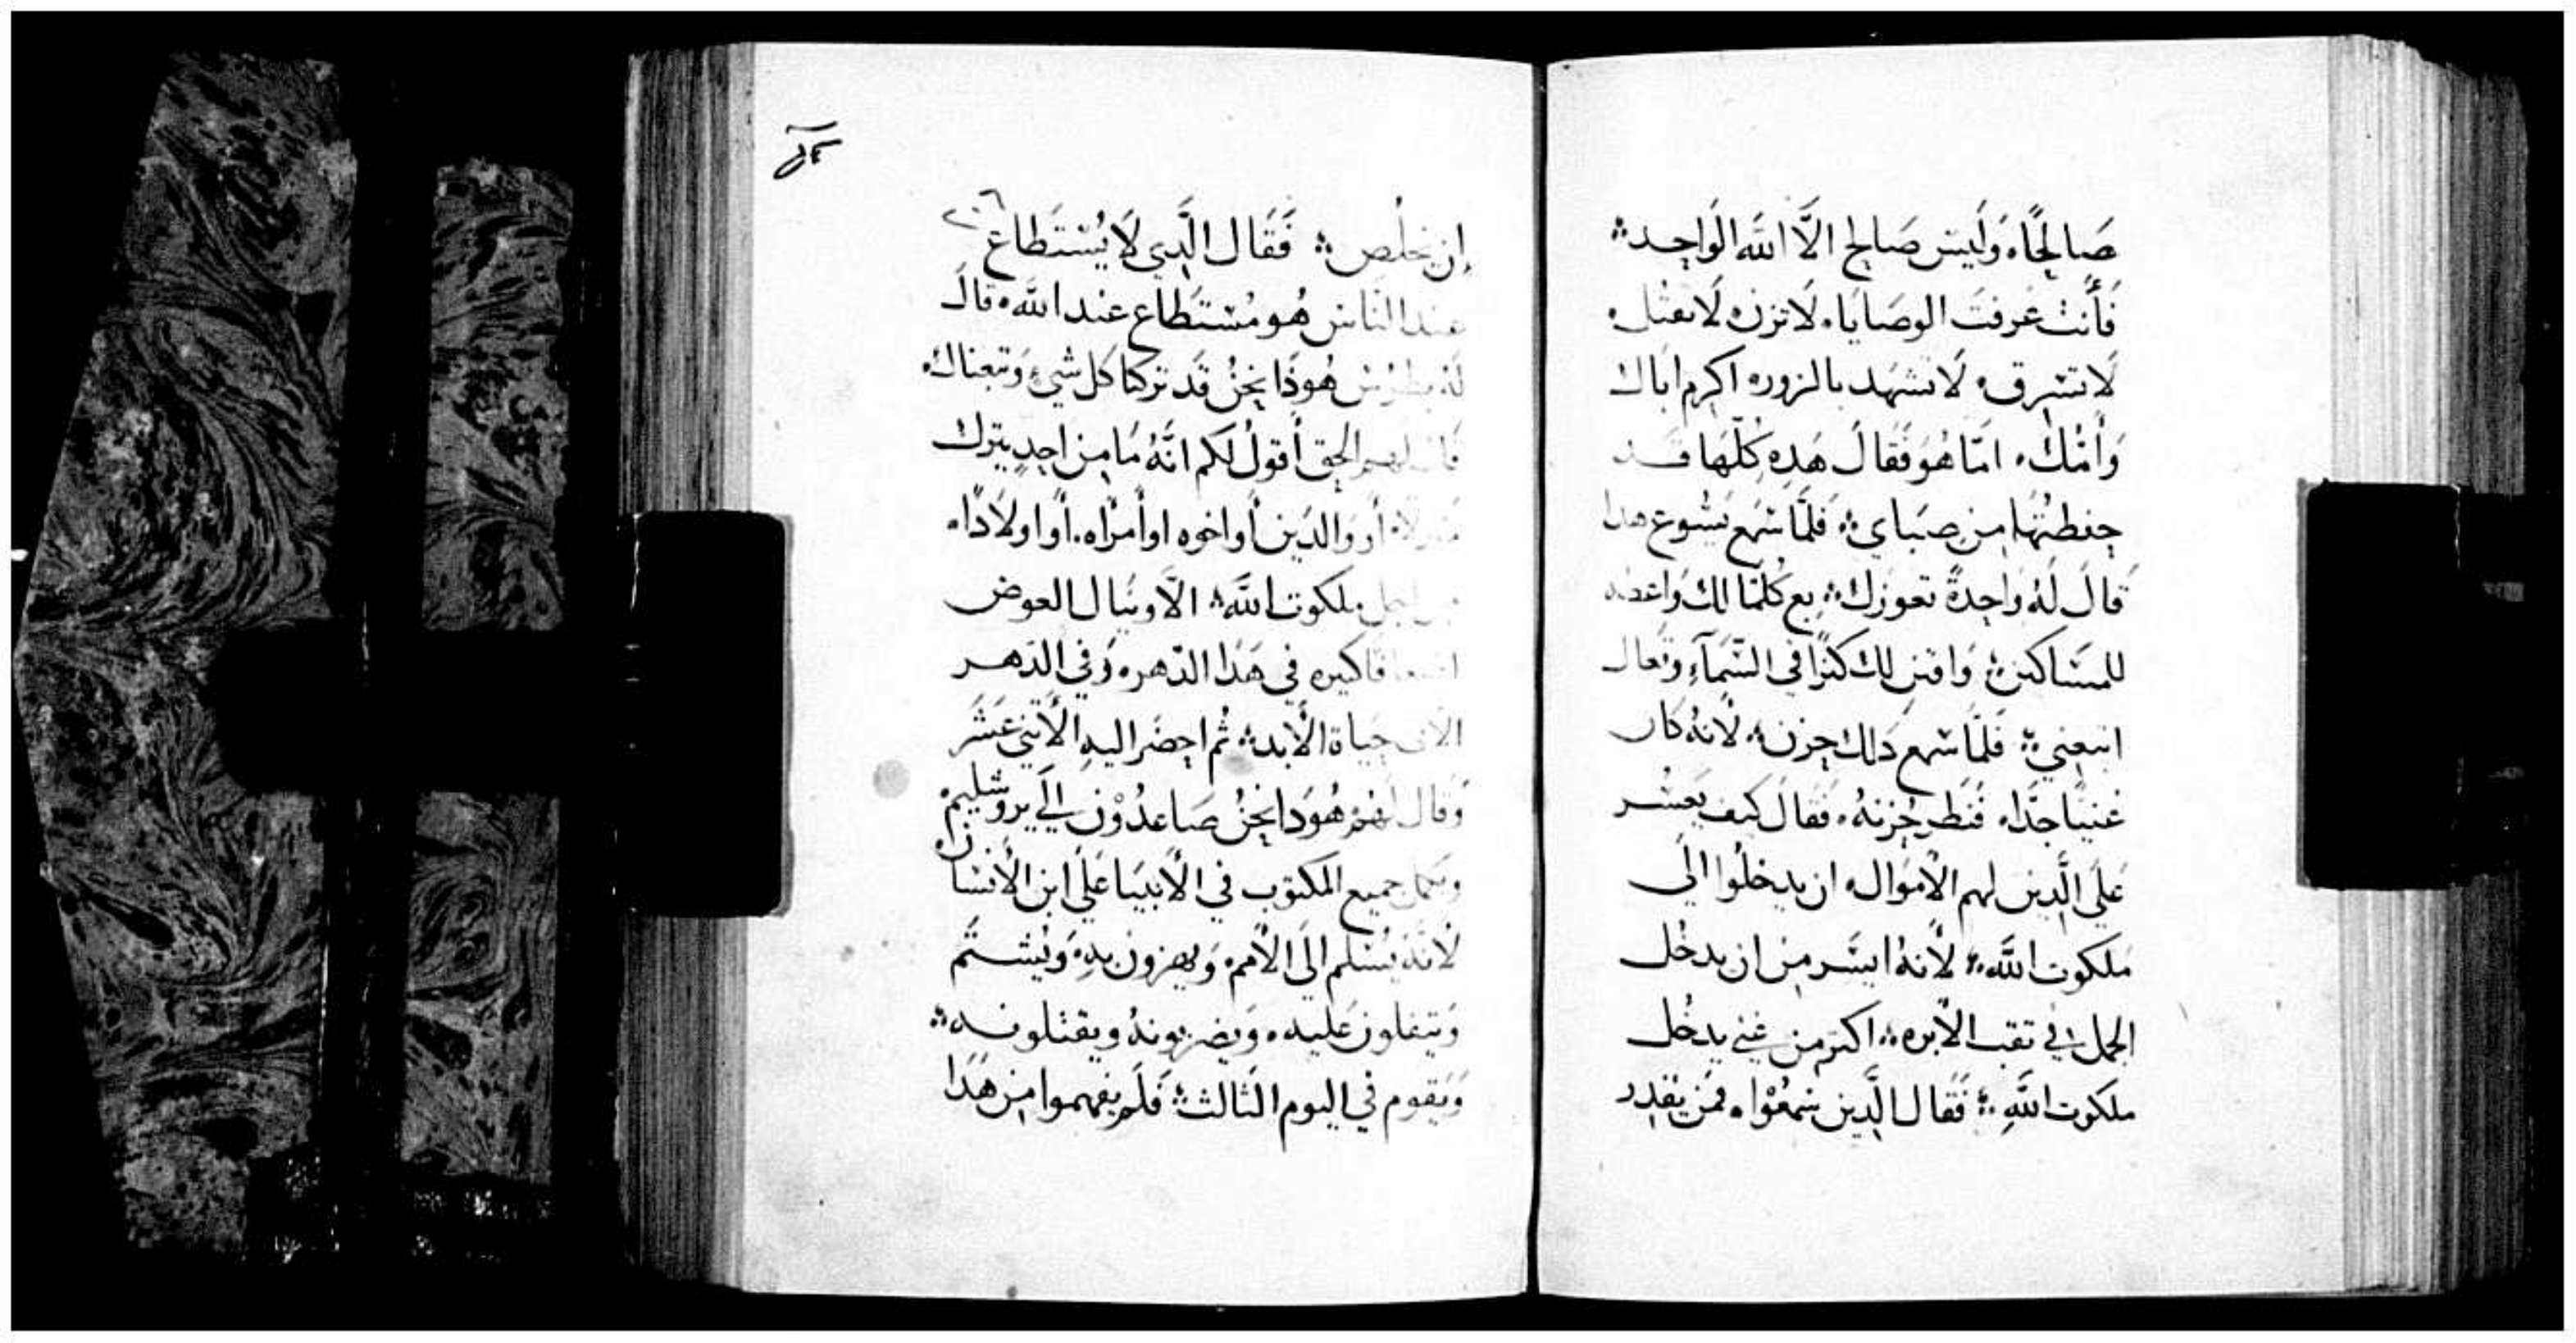 صَالِحًا، وَلَيسَ صَالِح الاَّ اللَّه الوَاحِد
فَأَنتَ عَرفتَ الوصَايَا، لَا تزن، لَا تقتل،
لَا تسرق، لَا تشهَد بالزور، اكرم اباك
وَأُمّك، امّا هُوَ فَقَالَ هَدِه كلّهَا قد
حِفظتُها مِن صِبَاي، فَلَمَّا سَمع يَشُوع هدا
قَالَ لَهُ وَاحِدةً تعوزك، بع كلمَا لك وَاعطه
للمسَاكين، وَاقتنِ لك كنزًا في السَّمَآءِ وتعال
اتبعني، فَلَمَّا سَمع دَلك حزن، لأنهُ كان
غَنيًا جدًّا، فَنظر حُزنهُ، فقَالَ كيف يَعسُر
عَلَي الَّدِين لهم الأموَال، ان يدخلُوا الَي
مَلكوت اللَّه، لأنهُ ايسَر مِن ان يدخُل
الجمل في تقب الأبره، اكتر من غني يدخُل
ملكوت اللَّهِ، فَقَال الَّدِين سَمعُوْا، فمَن يقدِر
٢٠٦
إن يخلُص، فَقَال الَّدِي لَا يُسْتَطَاع
عند النَاس هُو مُسْتَطَاع عند اللَّه، قالَ
لَهُ بطرُس هُوَدَا نحنُ قَد تركنَا كل شيء وَتبعنَاك،
قال لهم الحق أقولُ لكم انَّهُ مَا مِن احدٍ يترك
منزلًا، أو وَالدَين أو اخوه او أمرأه، أو اولَادًا،
من اجل ملكوت اللَّه، الاّ وينَال العوض
اضعافا كتيره في هَدَا الدّهر، وَفي الدّهر
الأتي حيَاة الأبد، ثُم احضَر اليهِ الأتني عَشَر
وَقَال لَهُمْ هُوَدَا نحنُ صَاعدُوْن الَي يروشَليم،
وتكمل جميع المكتوب في الأنبيَا عَلَي ابن الأنسَان،
لأنهُ يُسْلم الَي الأمم، وَيهزون بهِ، وَيُشتَم
وَيتفلون عَليه، وَيضربونهُ ويقتلونه
وَيَقوم في اليوم الثَالث، فَلَم يفهموا مِن هَدَا